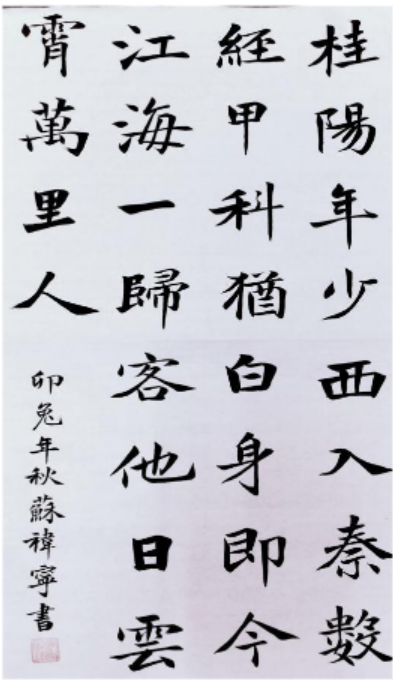 桂陽年少西入秦數
經甲科猶白身即今
江海一歸客他日雲
霄萬里人
卯兔年秋蘇禕寧書